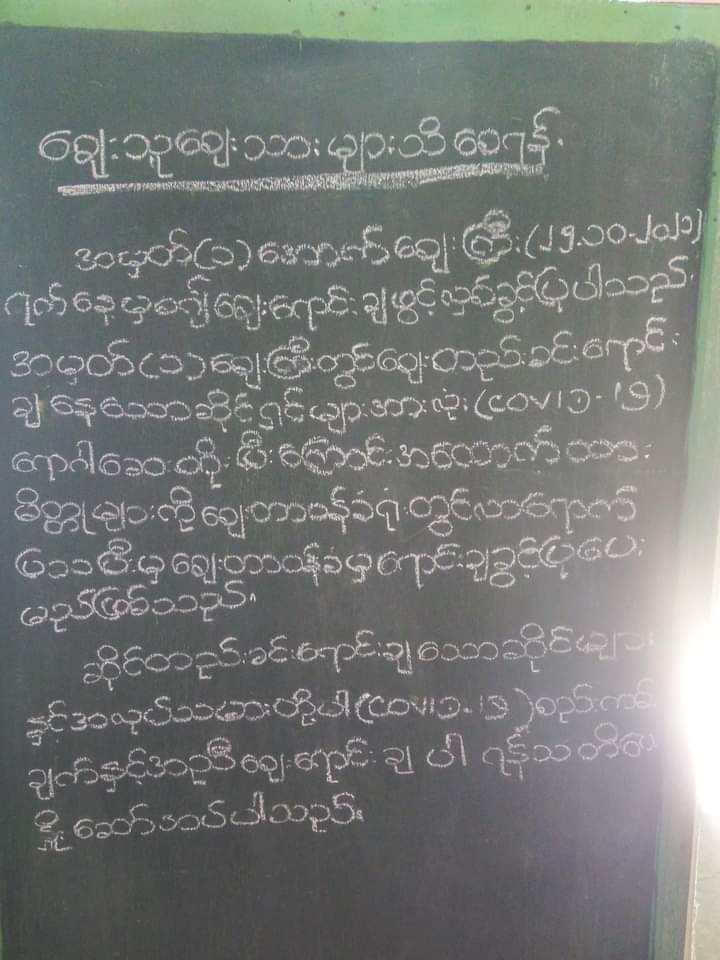 ဈေးသူဈေးသားများသိစေရန်.
အမှတ်(၁)အောက်ဈေးကြီး(၂၅.၁၀.၂၀၂၁)
ရက်နေ့မှစ၍ဈေးရောင်းချဖွင့်လှစ်ခွင့်ပြုပါသည်.
အမှတ်(၁)ဈေးကြီးတွင်ဈေးတည်ခင်းရောင်း
ချနေသောဆိုင်ရှင်များအားလုံး(COVID-19)
ရောဂါဆေးထိုးပြီးကြောင်းအထောက်အထား
မိတ္တူများကိုဈေးတာဝန်ခံရုံးတွင်လာရောက်
ပြသပြီးမှဈေးတာဝန်ခံမှရောင်းချခွင့်ပြုပေး
မည်ဖြစ်သည်.
ဆိုင်တည်ခင်းရောင်းချသောဆိုင်များ
နှင့်အလုပ်သမားတို့ပါ(COVID-19)စည်းကမ်း
ချက်နှင့်အညီဈေးရောင်းချပါရန်သတိပေး
နှိုးဆော်အပ်ပါသည်။